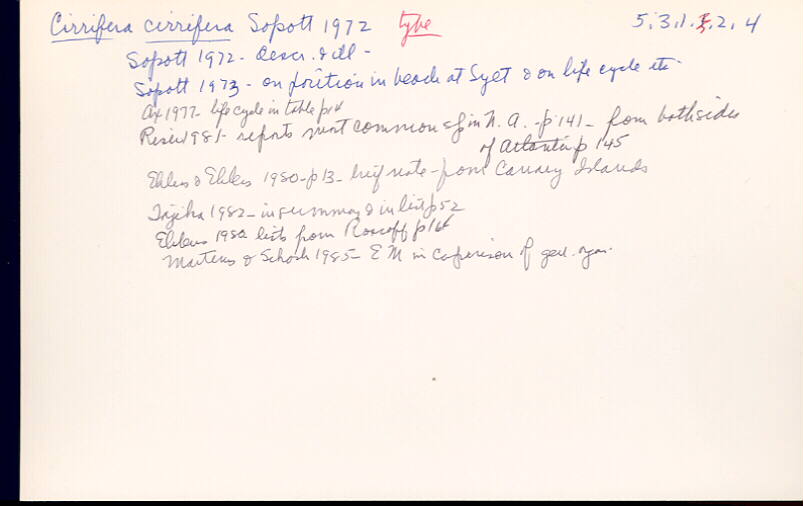 Cirrifera cirrifera Sopott 1972 type 5.3.1.5.2.4
Sopott 1972 - Descr. & ill -
Sopott 1973 - on position in beach at Sylt & on life cycle etc.
Ax 1977 - life cycle in table p14
Reiser 1981 - reports most common sp in N. A. - p 141 - from both sides
of Atlantic p 145
Ehlers & Ehlers 1980 - p13 - brief note - from Canary Islands
Tajika 1982 - in summary & in list p52
Ehlers 1980 lists from Roscoff p 14
Martens & Schock 1985 - E M in comparison of gen. organ.